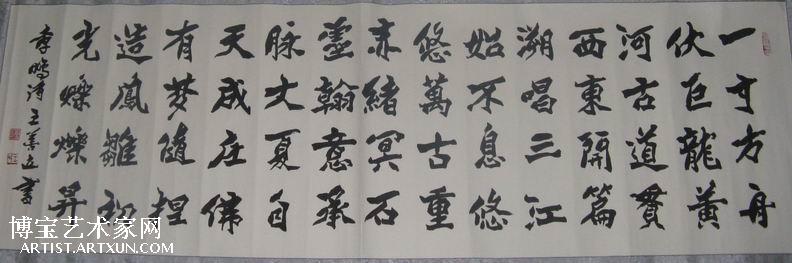 一寸方舟
伏巨龍黄
河古道貫
西東開篇
溯唱三江
始不息悠
悠萬古重
赤緒冥石
翰意承
脉大夏自
天成庄佛
有梦隨捏
造鳳雛初
光爍爍昇
李鹏诗王善書
博宝艺术家网
ARTIST.ARTXUN.COM